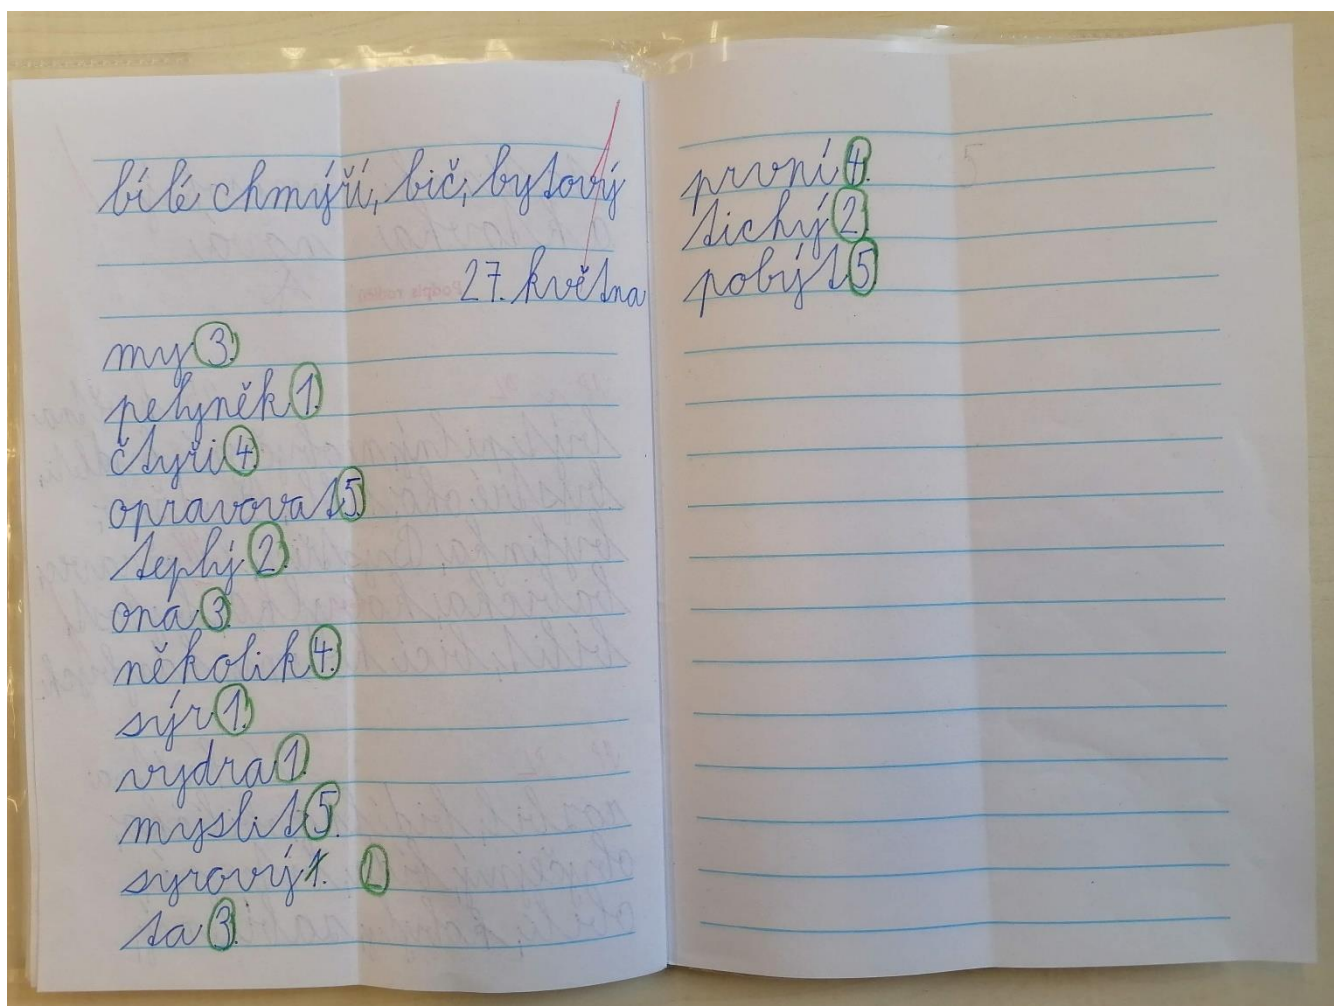 bílé chmýří, bič, bytový
27. května
my 3.
pelyněk 1.
čtyři 4
opravovat 5.
teplý 2.
ona 3.
několik 4.
sýr 1.
vydra 1.
myslit 5.
syrový 1. 2
ta 3.
první 4.
tichý 2.
pobýt 5
5